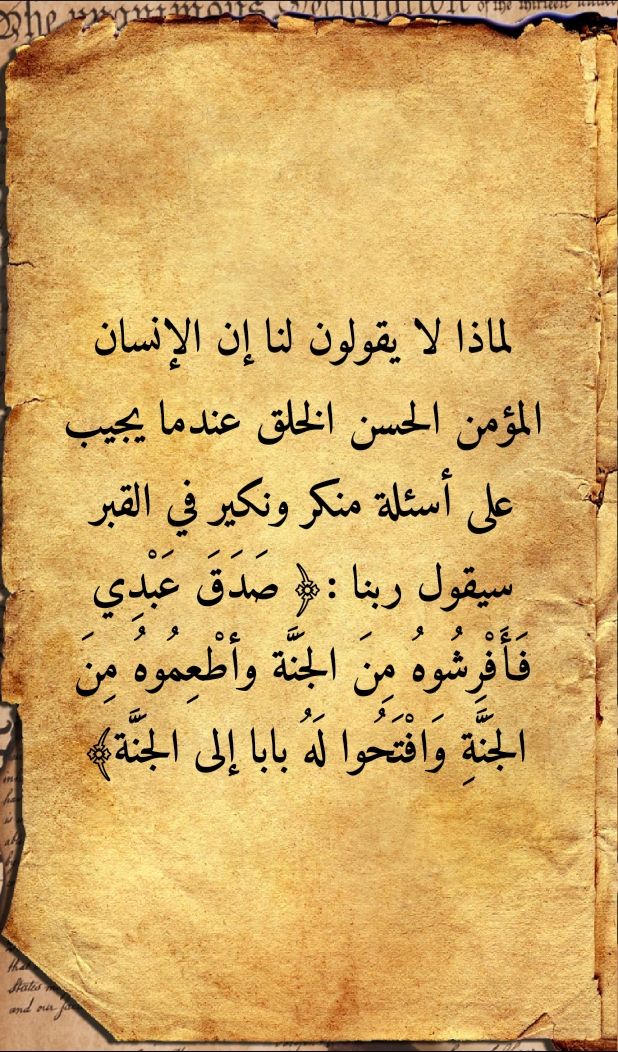 The unanimous Declaration of the thirteen united
لماذا لا يقولون لنا إن الإنسان
المؤمن الحسن الخلق عندما يجيب
على أسئلة منكر ونكير في القبر
سيقول ربنا :﴿ صَدَقَ عَبْدِي
فَأَفْرِشُوهُ مِنَ الجَنَّة وأطْعِمُوهُ مِنَ
الجَنَّةِ وَافْتَحُوا لَهُ بابا إلى الجَنَّة﴾
that
States
and our